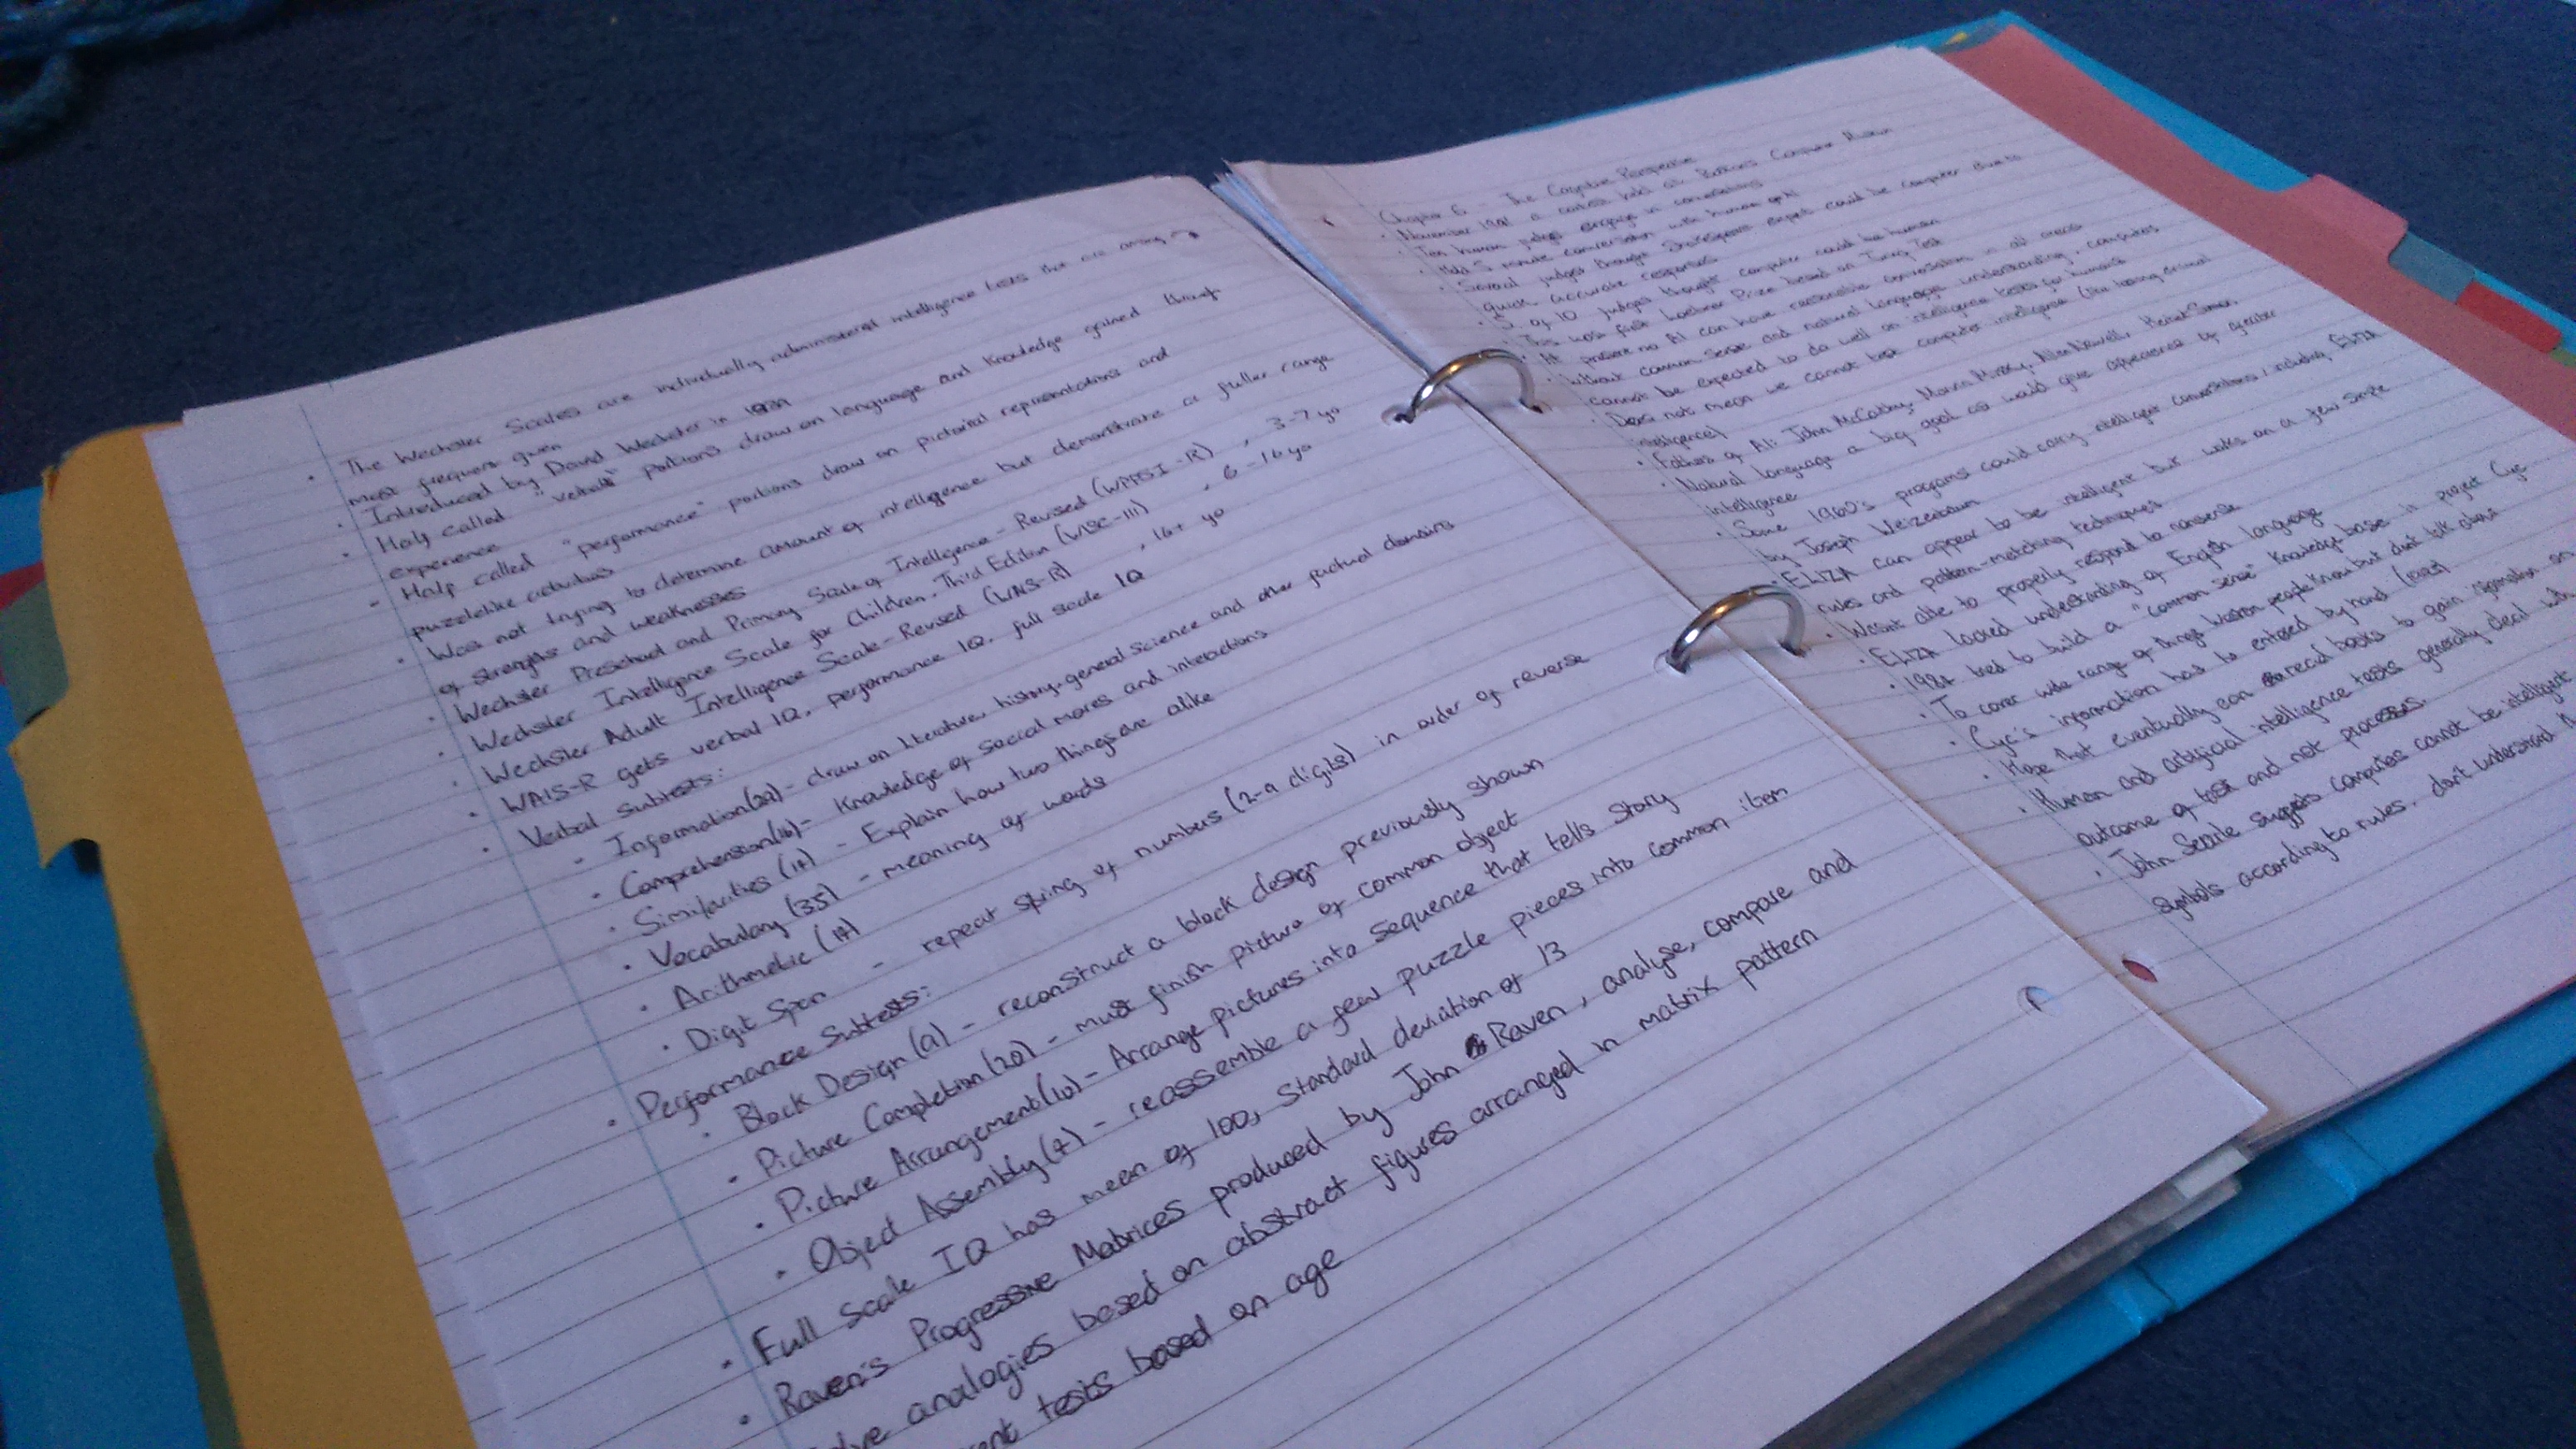 The Wechsler Scales are individually administered intelligence tests that are among
most frequent given
Introduced by David Wechsler in 1939
Half called "verbal" portions draw on language and knowledge gained through
experience
Half called "performance" portions draw on pictorial representations and
puzzlelike activities
Was not trying to determine amount of intelligence but demonstrate a fuller range
of strengths and weaknesses
Wechsler Preschool and Primary Scale of Intelligence - Revised (WPPSI-R), 3-7 yo
Wechsler Intelligence Scale for Children, Third Edition (WISC-III), 6-16 yo
Wechsler Adult Intelligence Scale-Revised (WAIS-R), 16+ yo
WAIS-R gets verbal IQ, performance IQ, full scale IQ
Verbal Subtests:
- Information(29)- draw on literature, history, general science and other factual domains
- Comprehension(16)- Knowledge of social mores and interactions
Similarities (14) - Explain how two things are alike
Vocabulary (35) - meaning of words
Arithmetic (14)
Digit Span - repeat string of numbers (2-9 digits) in order of reverse
Performance Subtests:
Block Design (9) - reconstruct a block design previously shown
Picture Completion (20) - must finish picture of common object
Picture Arrangement (10) - Arrange pictures into sequence that tells story
Object Assembly (4) - reassemble a few puzzle pieces into common item
Full Scale IQ has mean of 100, standard deviation of 13
Raven's Progressive Matrices produced by John Raven, analyse, compare and
analogies based on abstract figures arranged in matrix pattern
tests based on age
Chapter 6 - The Cognitive Perspective
November 1991 a contest held at Boston's Computer Museum
Ten human judges engage in conversations
Held 5 minute conversation with human or AI
Several judges thought Shakespeare expert could be computer due to
quick accurate responses
5 of 10 judges thought computer could be human
This was first Loebner Prize based on Turing Test
At present no AI can have reasonable conversation in all areas
Without common sense and natural language understanding, computers
cannot be expected to do well on intelligence tests for humans
Does not mean we cannot test computer intelligence (like testing animal
intelligence)
Fathers of AI: John McCathy, Marvin Minsky, Allen Newell, Herbert Simon
Natural language a big goal as would give appearance of greater
intelligence
Some 1960's programs could carry intelligent conversations, including ELIZA
by Joseph Weizenbaum
ELIZA can appear to be intelligent but works on a few simple
rules and pattern-matching techniques
Wasn't able to properly respond to nonsense
ELIZA lacked understanding of English language
1984 tried to build a "common sense" knowledge base in project Cyc
To cover wide range of things Western people know but don't talk about
Cyc's information has to entered by hand
Hope that eventually can read books to gain information on
Human and artificial intelligence tests generally deal with
outcome of test and not processes.
John Searle suggests computers cannot be intelligent
symbols according to rules, don't understand